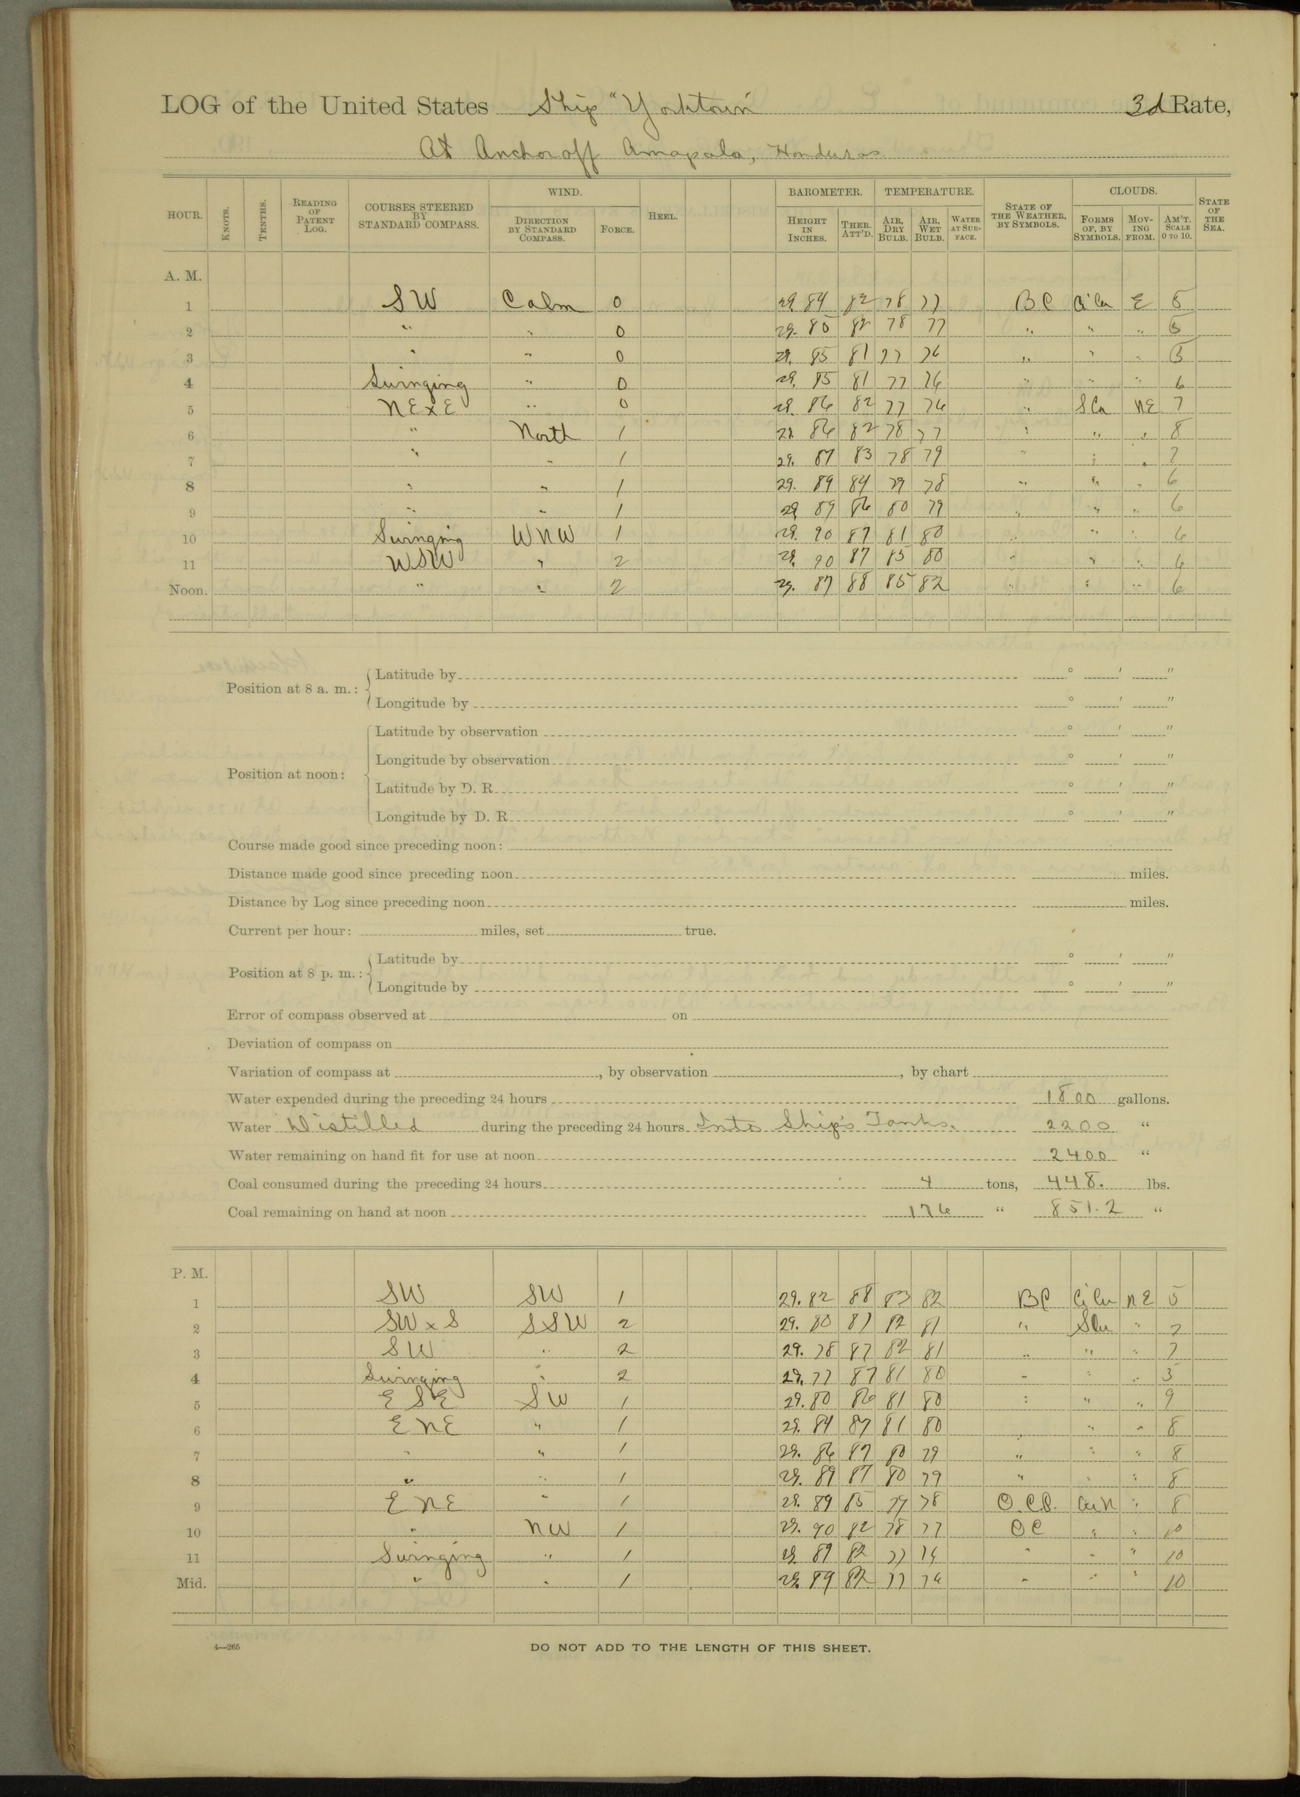 LOG of the United States Ship "Yorktown" 3d Rate,
At Anchor off Amapala, Honduras
HOUR. KNOTS. TENTHS. READING OF PATENT LOG. COURSES STEERED BY STANDARD COMPASS. WIND. DIRECTION BY STANDARD COMPASS. FORCE. HEEL. BAROMETER. HEIGHT IN INCHES. THER. ATT'D. TEMPERATURE. AIR, DRY BULB. AIR, WET BULB. WATER AT SURFACE. STATE OF THE WEATHER, BY SYMBOLS. CLOUDS. FORMS OF, BY SYMBOLS. MOVING FROM. AM'T. SCALE 0 TO 10. STATE OF THE SEA.
A. M.
1 SW Calm 0 29 84 82 78 77 BC CiCu E 5
2 " " 0 29. 85 82 78 77 " " " 5
3 " " 0 29. 85 81 77 76 " " " 5
4 Swinging " 0 29. 85 81 77 76 " " " 6
5 NExE " 0 29. 86 82 77 76 " SCu NE 7
6 " North 1 29. 86 82 78 77 " " " 8
7 " " 1 29. 87 83 78 79 " " " 7
8 " " 1 29. 89 84 79 78 " " " 6
9 " " 1 29 89 86 80 79 " " " 6
10 Swinging WNW 1 29. 90 87 81 80 " " " 6
11 WSW " 2 29. 90 87 85 80 " " " 6
Noon. " " 2 29. 87 88 85 82 " " " 6
Position at 8 a. m.: Latitude by ° ' "
Longitude by ° ' "
Position at noon: Latitude by observation ° ' "
Longitude by observation ° ' "
Latitude by D. R. ° ' "
Longitude by D. R. ° ' "
Course made good since preceding noon:
Distance made good since preceding noon miles.
Distance by Log since preceding noon miles.
Current per hour: miles, set true.
Position at 8 p. m.: Latitude by ° ' "
Longitude by ° ' "
Error of compass observed at on
Deviation of compass on
Variation of compass at , by observation , by chart
Water expended during the preceding 24 hours 1800 gallons.
Water Distilled during the preceding 24 hours Into Ship's Tanks. 2200 "
Water remaining on hand fit for use at noon 2400 "
Coal consumed during the preceding 24 hours 4 tons, 448. lbs.
Coal remaining on hand at noon 176 " 851.2 "
P. M.
1 SW SW 1 29. 82 88 83 82 BC CiCu NE 5
2 SWxS SSW 2 29. 80 87 82 81 " SCu " 7
3 SW " 2 29. 78 87 82 81 " " " 7
4 Swinging " 2 29. 77 87 81 80 " " " 5
5 ESE SW 1 29. 80 86 81 80 " " " 9
6 ENE " 1 29. 84 87 81 80 " " 8
7 " " 1 29. 86 87 80 79 " " " 8
8 " " 1 29. 89 87 80 79 " " " 8
9 ENE " 1 29. 89 85 79 78 CuN " 8
10 " NW 1 29. 90 82 78 77 OC " " 10
11 Swinging " 1 29. 89 82 77 76 " " " 10
Mid. " " 1 29. 89 82 77 76 " " " 10
4—265
DO NOT ADD TO THE LENGTH OF THIS SHEET.